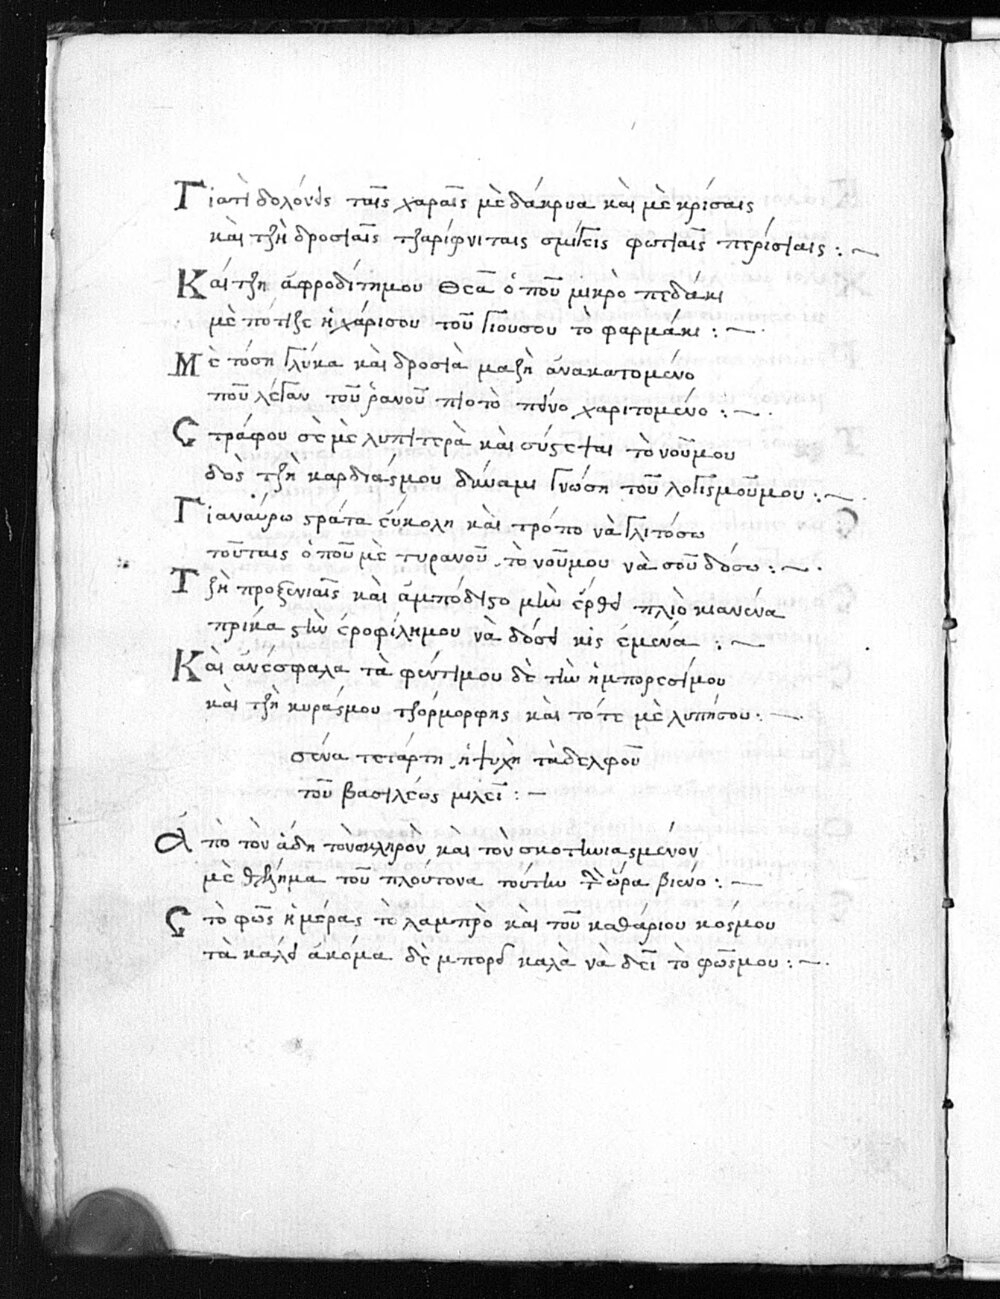 Γιατὶ δολόνεις ταῖς χαραῖς μὲ δάκρυα καὶ μὲ κρίσαις
καὶ τζὴ δροσιαῖς τζαρίφνιταις σμίγεις φωτιαῖς περίσιαις :~
Καί τζη ἀφροδίτημου θεᾶ ὁποῦ μικρο πεδάκι
μὲ πότιξε ἡ χάρισου τοῦ γιοῦσου τὸ φαρμάκι :~
Μὲ τόση γλύκα καὶ δροσιὰ μαζὴ ἀνακατομενο
ποῦ λέγαν τοῦ ῥανοῦ πιοτὸ πένο χαριτομένο :~
Στράφου σὲ μὲ λυπιτερὰ καὶ σύσεψαι τὸ νοῦμου
δὸς τζὴ καρδιάςμου δύναμι γνώση τοῦ λογιςμοῦμου :~
Γιαναύρω ςράτα εὔκολη καὶ τρόπο νὰ γλιτόσω
τοῦταις ὁποῦ με τυρανοῦ τὸ νοῦμου νὰ σοῦ δόσω :~
Τζὴ προξενιαῖς καὶ ἀμπόδηςο μὴν ἔρθει πλιὸ κιανένα
πρίκα ςτὴν ἐροφίλημου νὰ δόσει κις ἐμένα :~
Καὶ ἀνέσφαλα τὰ φέντιμου δὲ τὴν ἠμπορεσίμου
καὶ τζὴ κυράςμου τζόρμορφης καὶ τότε μὲ λυπήσου :~
σένα τετάρτη ἡ ψυχὴ τἀδελφοῦ
τοῦ βασιλέως μιλεῖ :~
Ἀπὸ τὸν ἅδη τὸν σκληρὸν καὶ τὸν σκοτινιαςμένον
μὲ θέλημα τοῦ πλούτονα τούτην τὴν ὥρα βγιένο :~
Στὸ φῶς ἡμέρας τὸ λαμπρὸ καὶ τοῦ καθάριου κοςμου
τὰ καλὰ ἀκόμα δὲ μπορεῖ καλὰ νὰ δεῖ τὸ φῶςμου :~